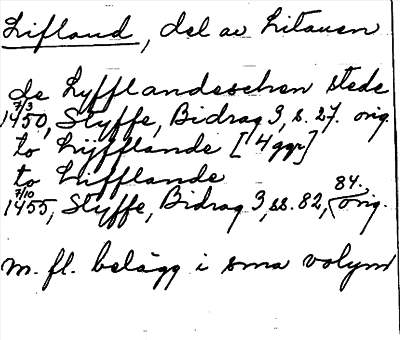 Lifland, del av Litauen
de Lyfflandeschen stede
7/3 1450, Styffe, Bidrag 3, s. 27. orig.
to Lijfflande [4 ggr]
to Liifflande
7/10 1455, Styffe, Bidrag 3, ss. 82, 84. orig.
m. fl. belägg i sma volym